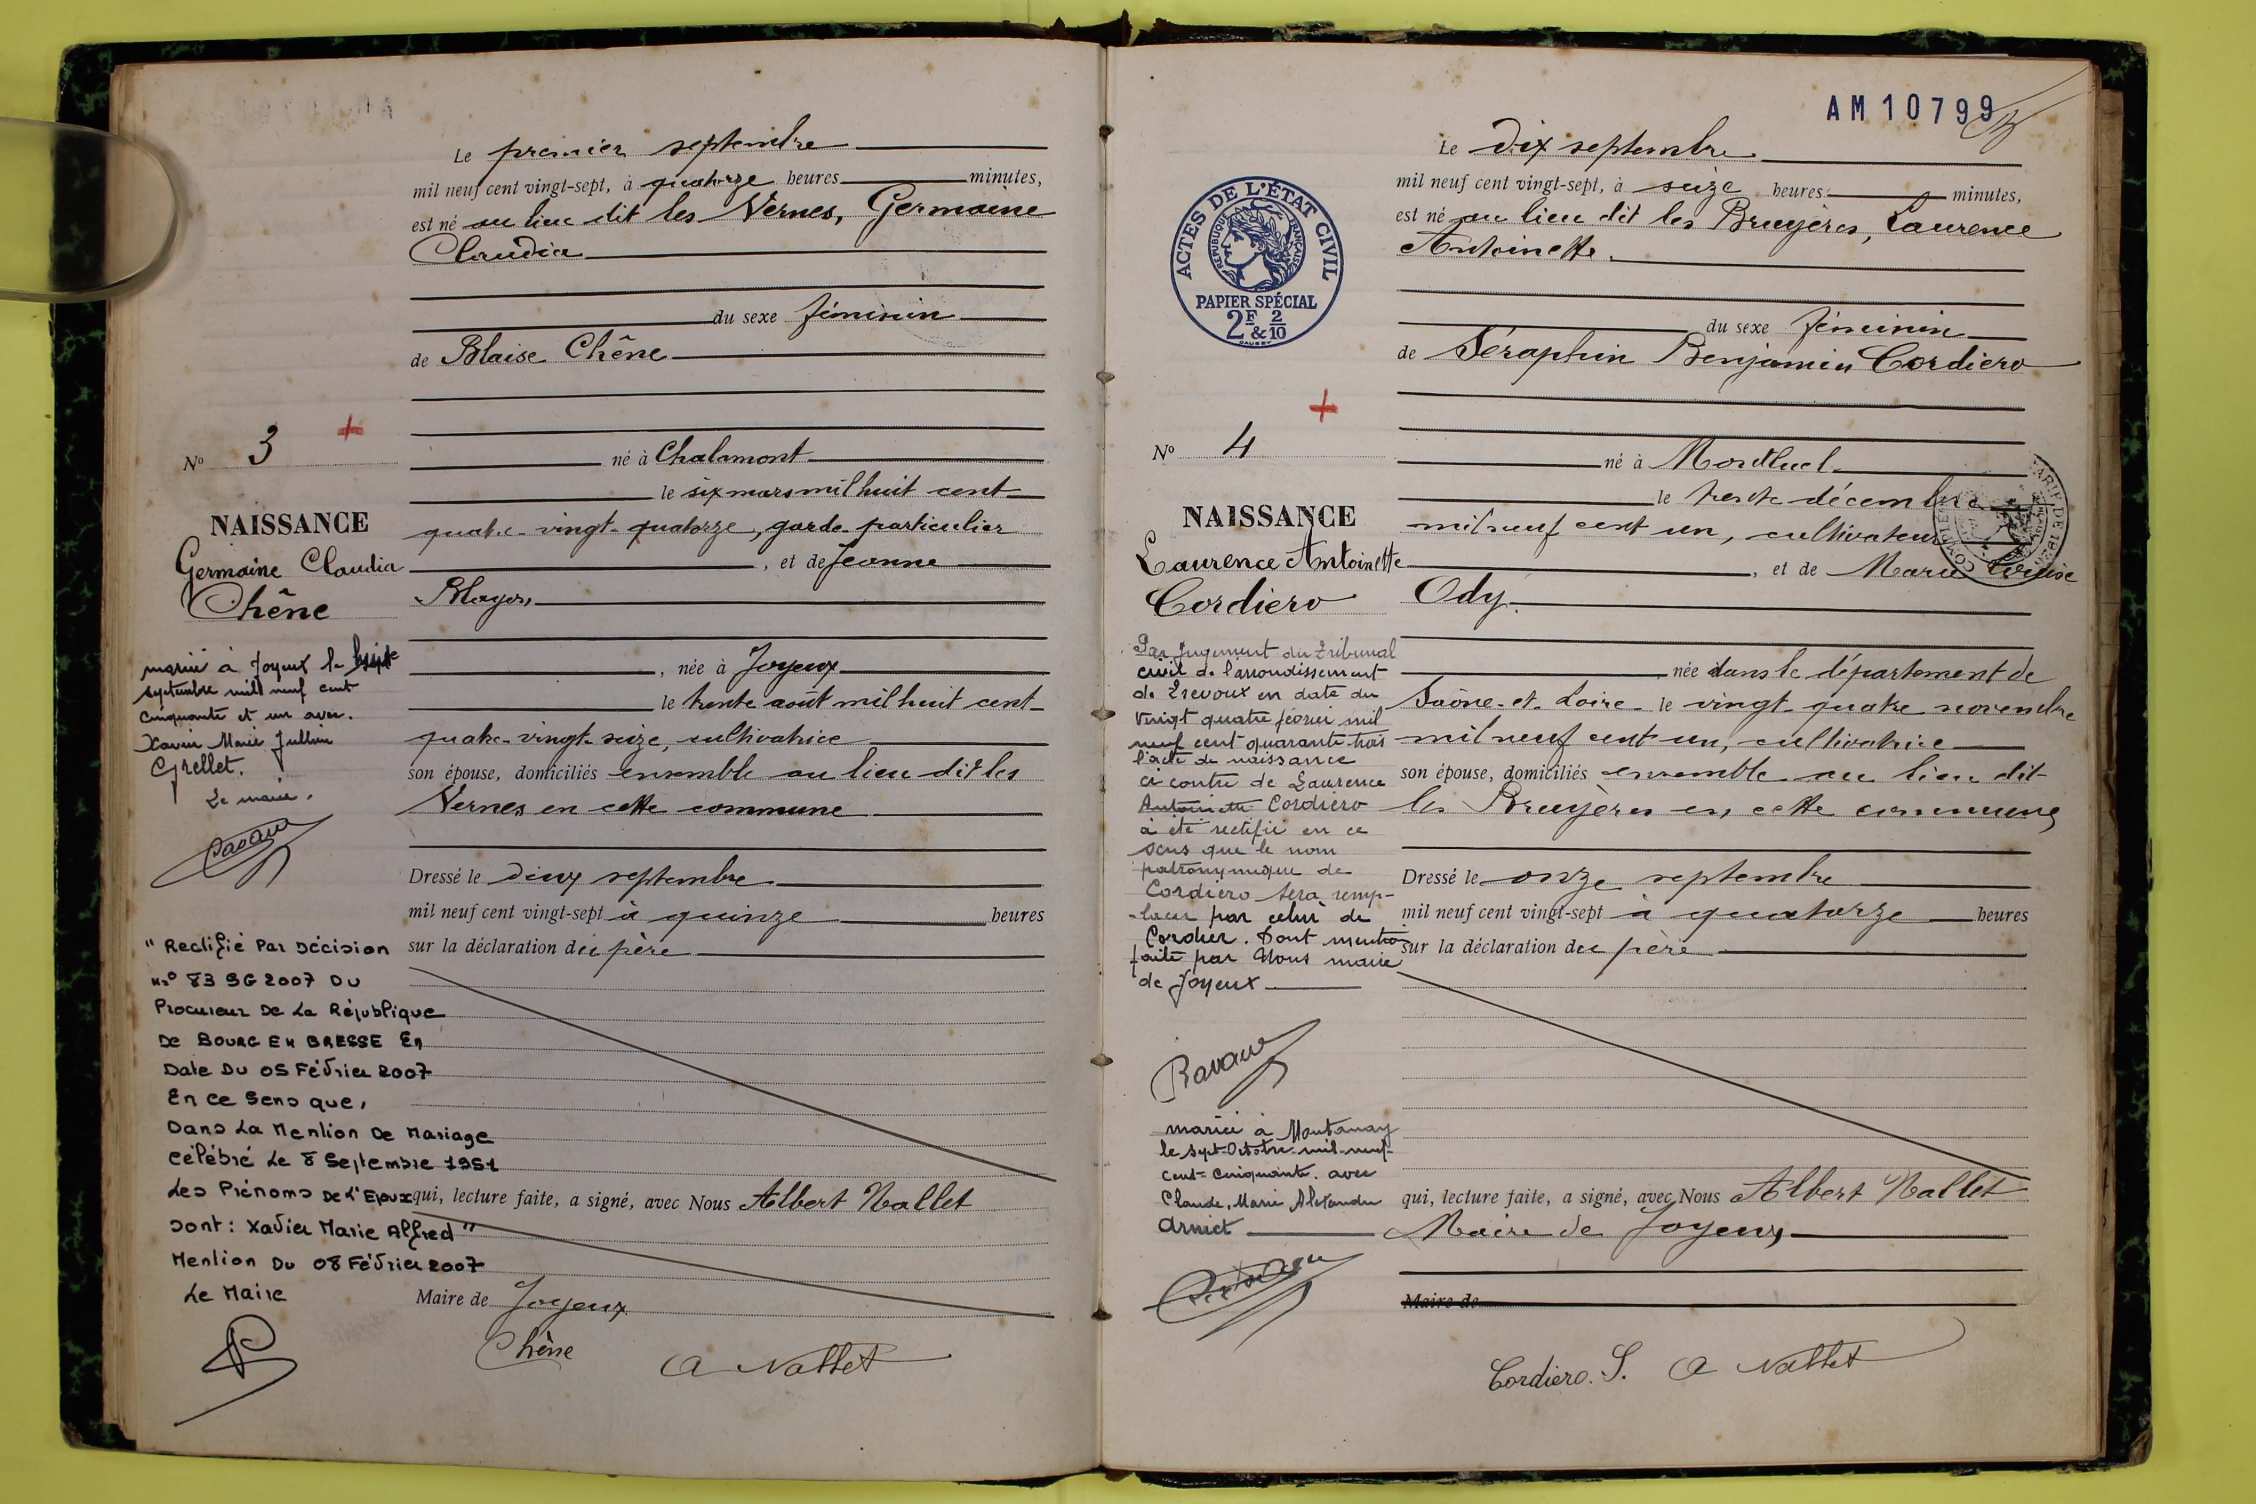 Le premier septembre
mil neuf cent vingt-sept, à quatorze heures minutes,
est né au lieu dit les Vernes, Germaine
Claudia
du sexe féminin
de Blaise Chêne
né à Chalamont
le six mars mil huit cent
quatre-vingt-quatorze, garde particulier
, et de Jeanne
, née à Joyeux
le trente août mil huit cent
quatre-vingt-seize, cultivatrice
son épouse, domiciliés ensemble au lieu dit les
Vernes en cette commune
Dressé le deux septembre
mil neuf cent vingt-sept à quinze heures
sur la déclaration du père
qui, lecture faite, a signé, avec Nous Albert Nallet
Maire de Joyeux
Chêne A Nallet
No 3
NAISSANCE
Germaine Claudia
Chêne
mariée à Joyeux le
septembre mil neuf cent
cinquante et un avec
Xavier Marie Jullien
Grellet.
Le maire,
"Rectifié Par Décision
N° 83 SG 2007 Du
Procureur De La République
De BOURG EN BRESSE En
Date Du 05 Février 2007
En ce Sens que,
Dans La Mention De Mariage
célébré Le 8 Septembre 1951
Les Prénoms De L'Epoux
sont : Xavier Marie Alfred"
Mention Du 08 Février 2007
Le Maire
AM 10799
Le dix septembre
mil neuf cent vingt-sept, à seize heures minutes,
est né au lieu dit les Bruyères, Laurence
Antoinette.
du sexe féminin
de Séraphin Benjamin Cordiero
né à Montluel
le trente décembre
mil neuf cent un, cultivateur
, et de Marie Louise
Ody.
née dans le département de
Saône-et-Loire le vingt-quatre novembre
mil neuf cent un, cultivatrice
son épouse, domiciliés ensemble au lieu dit
les Bruyères en cette commune
Dressé le onze septembre
mil neuf cent vingt-sept à quatorze heures
sur la déclaration du père
qui, lecture faite, a signé, avec Nous Albert Nallet
Maire de Joyeux,
Maire de
Cordiero. S. A Nallet
ACTES DE L'ÉTAT CIVIL
REPUBLIQUE FRANÇAISE
PAPIER SPÉCIAL
2F & 2/10
No 4
NAISSANCE
Laurence Antoinette
Cordiero
Par Jugement du Tribunal
civil de l'arrondissement
de Trevoux en date du
Vingt quatre février mil
neuf cent quarante-trois
l'acte de naissance
ci contre de Laurence
Antoinette Cordiero
a été rectifié en ce
sens que le nom
patronymique de
Cordiero sera remp-
-lacer par celui de
Cordier. Dont mention
faite par Nous maire
de Joyeux
Ravaux
mariée à Montanay
le sept Octobre mil-neuf-
cent-Cinquante. avec
Claude, Marie Alexandre